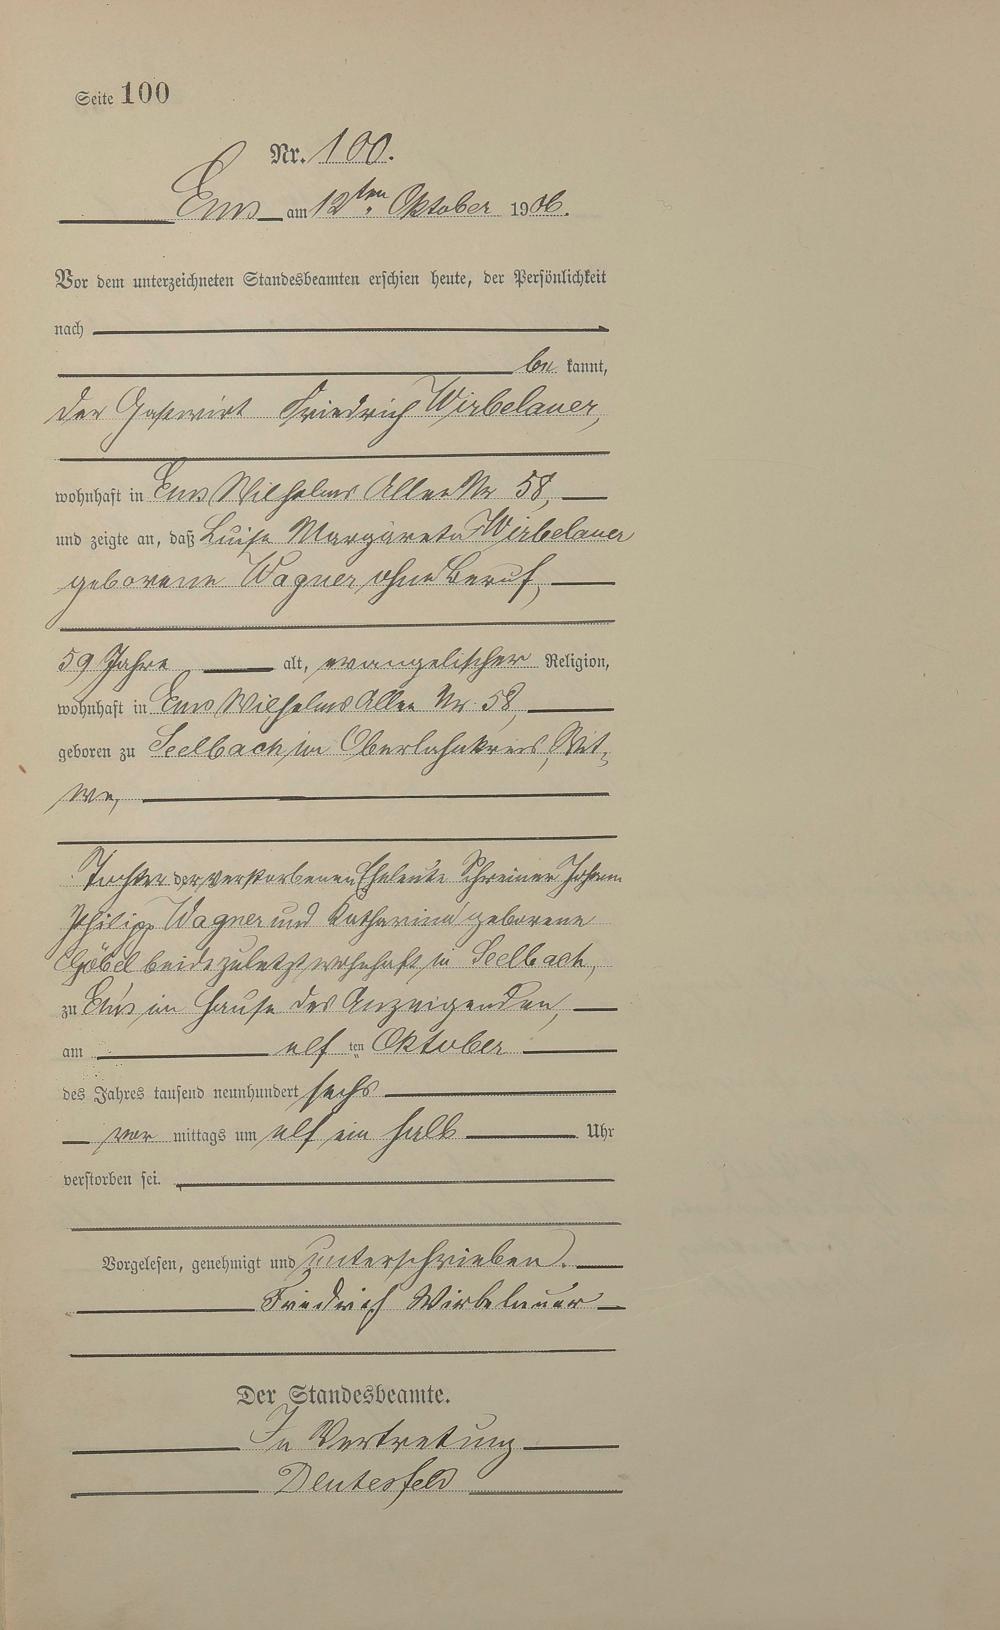 Seite 100
Nr. 100.
Ems am 12ten Oktober 1906.
Vor dem unterzeichneten Standesbeamten erschien heute, der Persönlichkeit
nach
be kannt,
der Gastwirt Friedrich Wirbelauer,
wohnhaft in Ems Wilhelms Allee Nr 58,
und zeigte an, daß Luise Margareta Wirbelauer
geborene Wagner ohne Beruf,
59 Jahre alt, evangelischer Religion,
wohnhaft in Ems Wilhelms Allee Nr. 58,
geboren zu Seelbach im Oberlahnkreis, Wit-
we,
Tochter der verstorbenen Eheleute Schreiner Johann
Philipp Wagner und Katharina geborene
Göbel beide zuletzt wohnhaft in Seelbach,
zu Ems im Hause des Anzeigenden,
am elf ten Oktober
des Jahres tausend neunhundert sechs
vor mittags um elf ein halb Uhr
verstorben sei.
Vorgelesen, genehmigt und unterschrieben.
Friedrich Wirbelauer
Der Standesbeamte.
In Vertretung